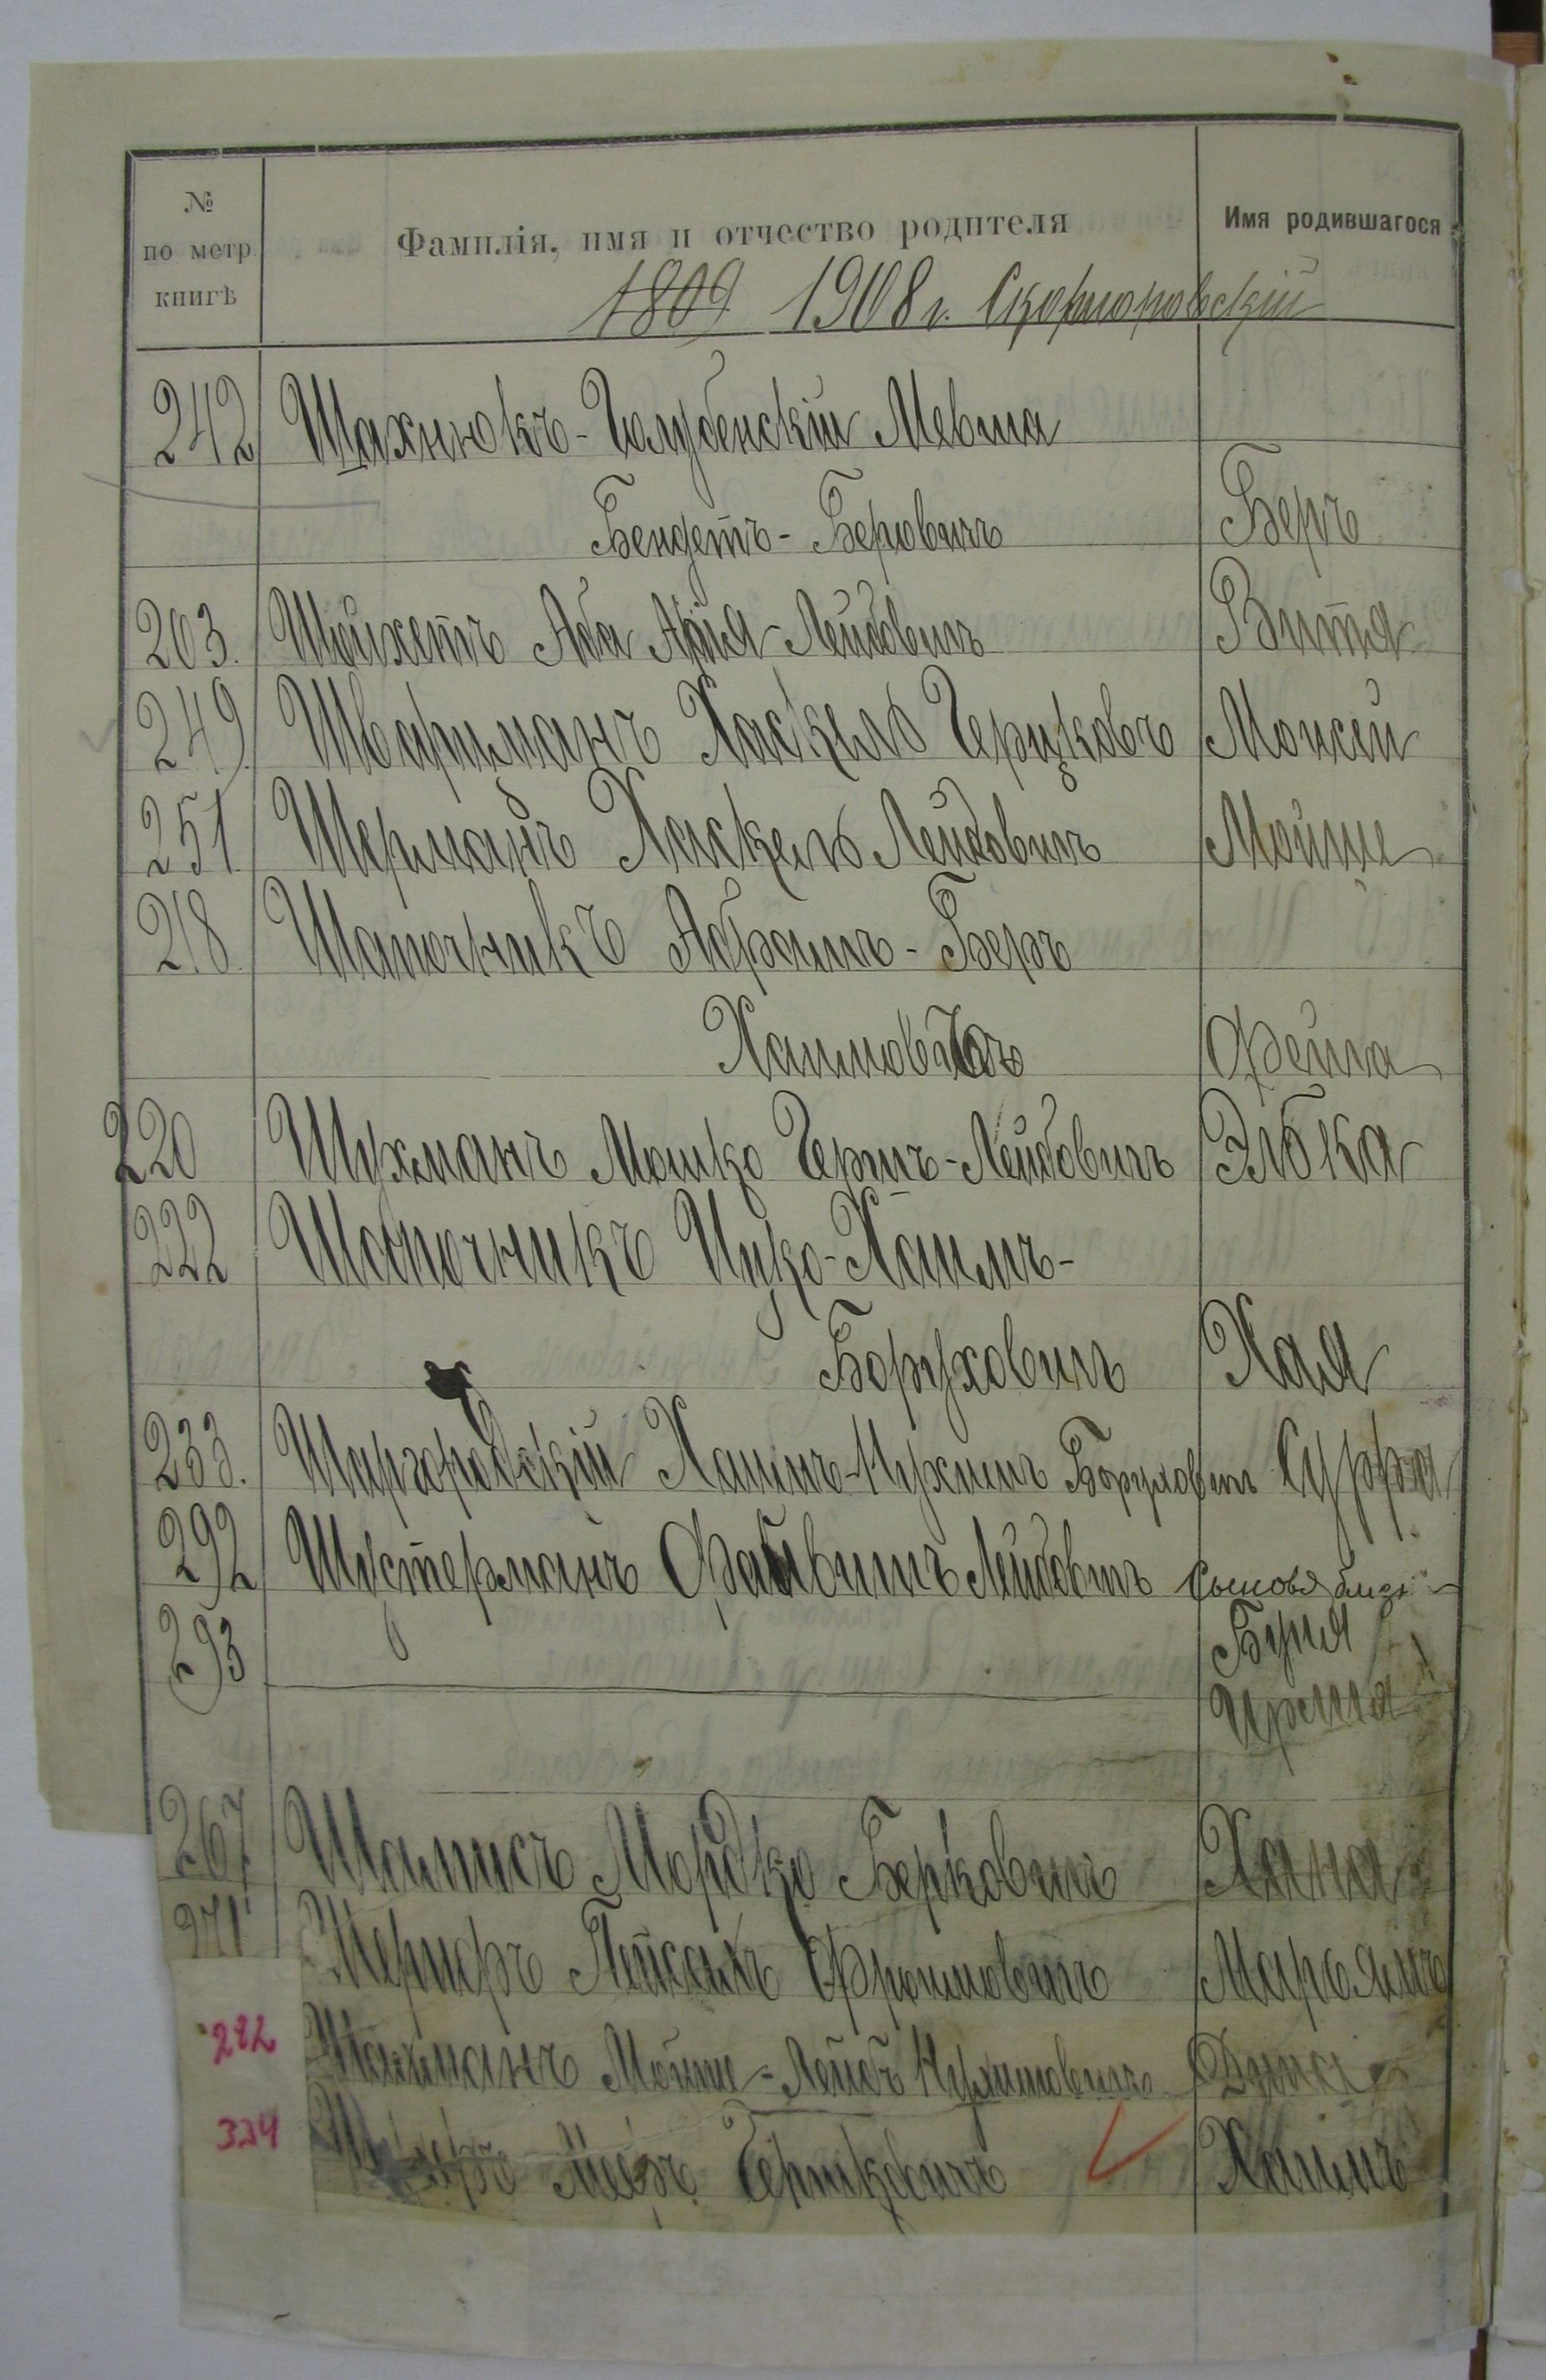 № по метр. книгѣ
Фамилія, имя и отчество родителя
Имя родившагося
1809 1908 г.
242 Шахнюкъ-Голубенскій Мевша
Бендетъ-Беровичъ Беръ
203. Шойхетъ Аба Арія-Лейбовичъ Витя
249. Шварцманъ Хаскель Герцковъ Моисей
251 Шерманъ Хаскель Лейбовичъ Мойше
218. Шапочникъ Абрамъ-Беръ
Хаимовичъ Фейга
220 Шухманъ Мошко Гершъ-Лейбовичъ Элька
222 Шапочникъ Ицко-Хаимъ-
Боруховичъ Хая
233. Шаргородскій Хаимъ-Нухимъ Боруховичъ Сурра
292 Шустерманъ Файвишъ Лейбовичъ сыновья близн
293 Буня
267 Мордко Берковичъ Хана
271 Пейсахъ Фроимовичъ Марьямъ
282 Мойше-Лейбъ Нухимовичъ
334 Мееръ Гершковичъ Хаимъ